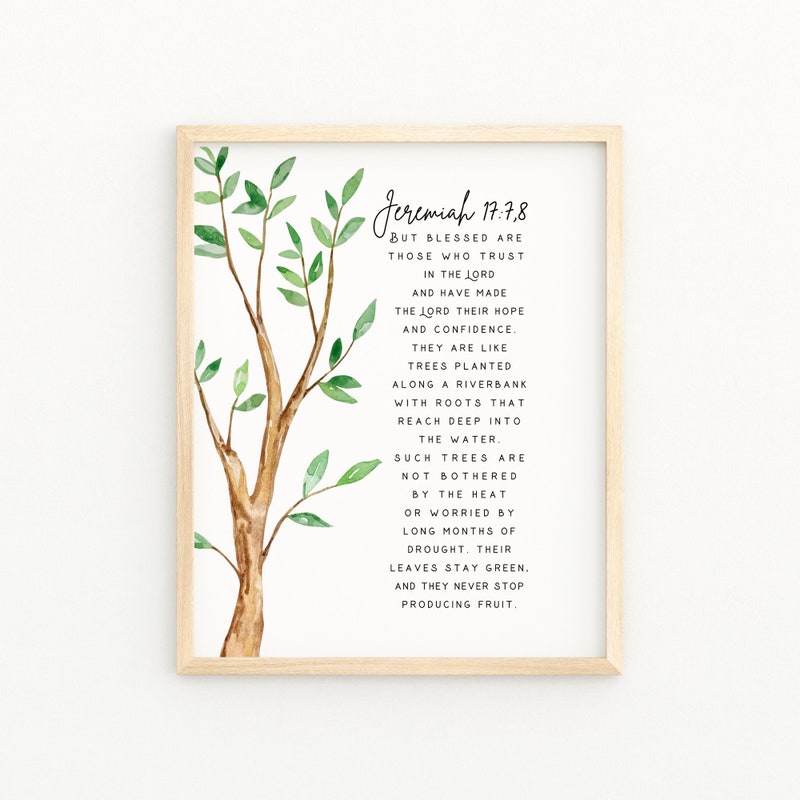 Jeremiah 17:7,8
But blessed are
those who trust
in the Lord
and have made
the Lord their hope
and confidence.
They are like
trees planted
along a riverbank
with roots that
reach deep into
the water.
Such trees are
not bothered
by the heat
or worried by
long months of
drought. Their
leaves stay green,
and they never stop
producing fruit.